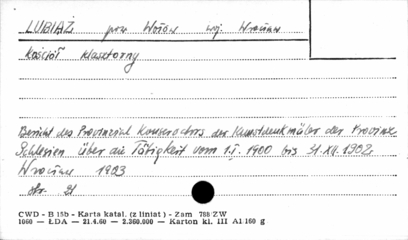 LUBIĄŻ pow. Wołów woj. Wrocław
Kościół klasztorny
Bericht des Provinzial Konservators der Kunstdenkmäler der Provinz
Schlesien über die Tätigkeit vom 1.I. 1900 bis 31.XII.1902
Wrocław 1903
str. 21
CWD - B 15b - Karta katal. (z liniat) - Zam 788 ZW
1060 — ŁDA — 21.4.60 - 2.360.000 — Karton kl. III A1 160 g